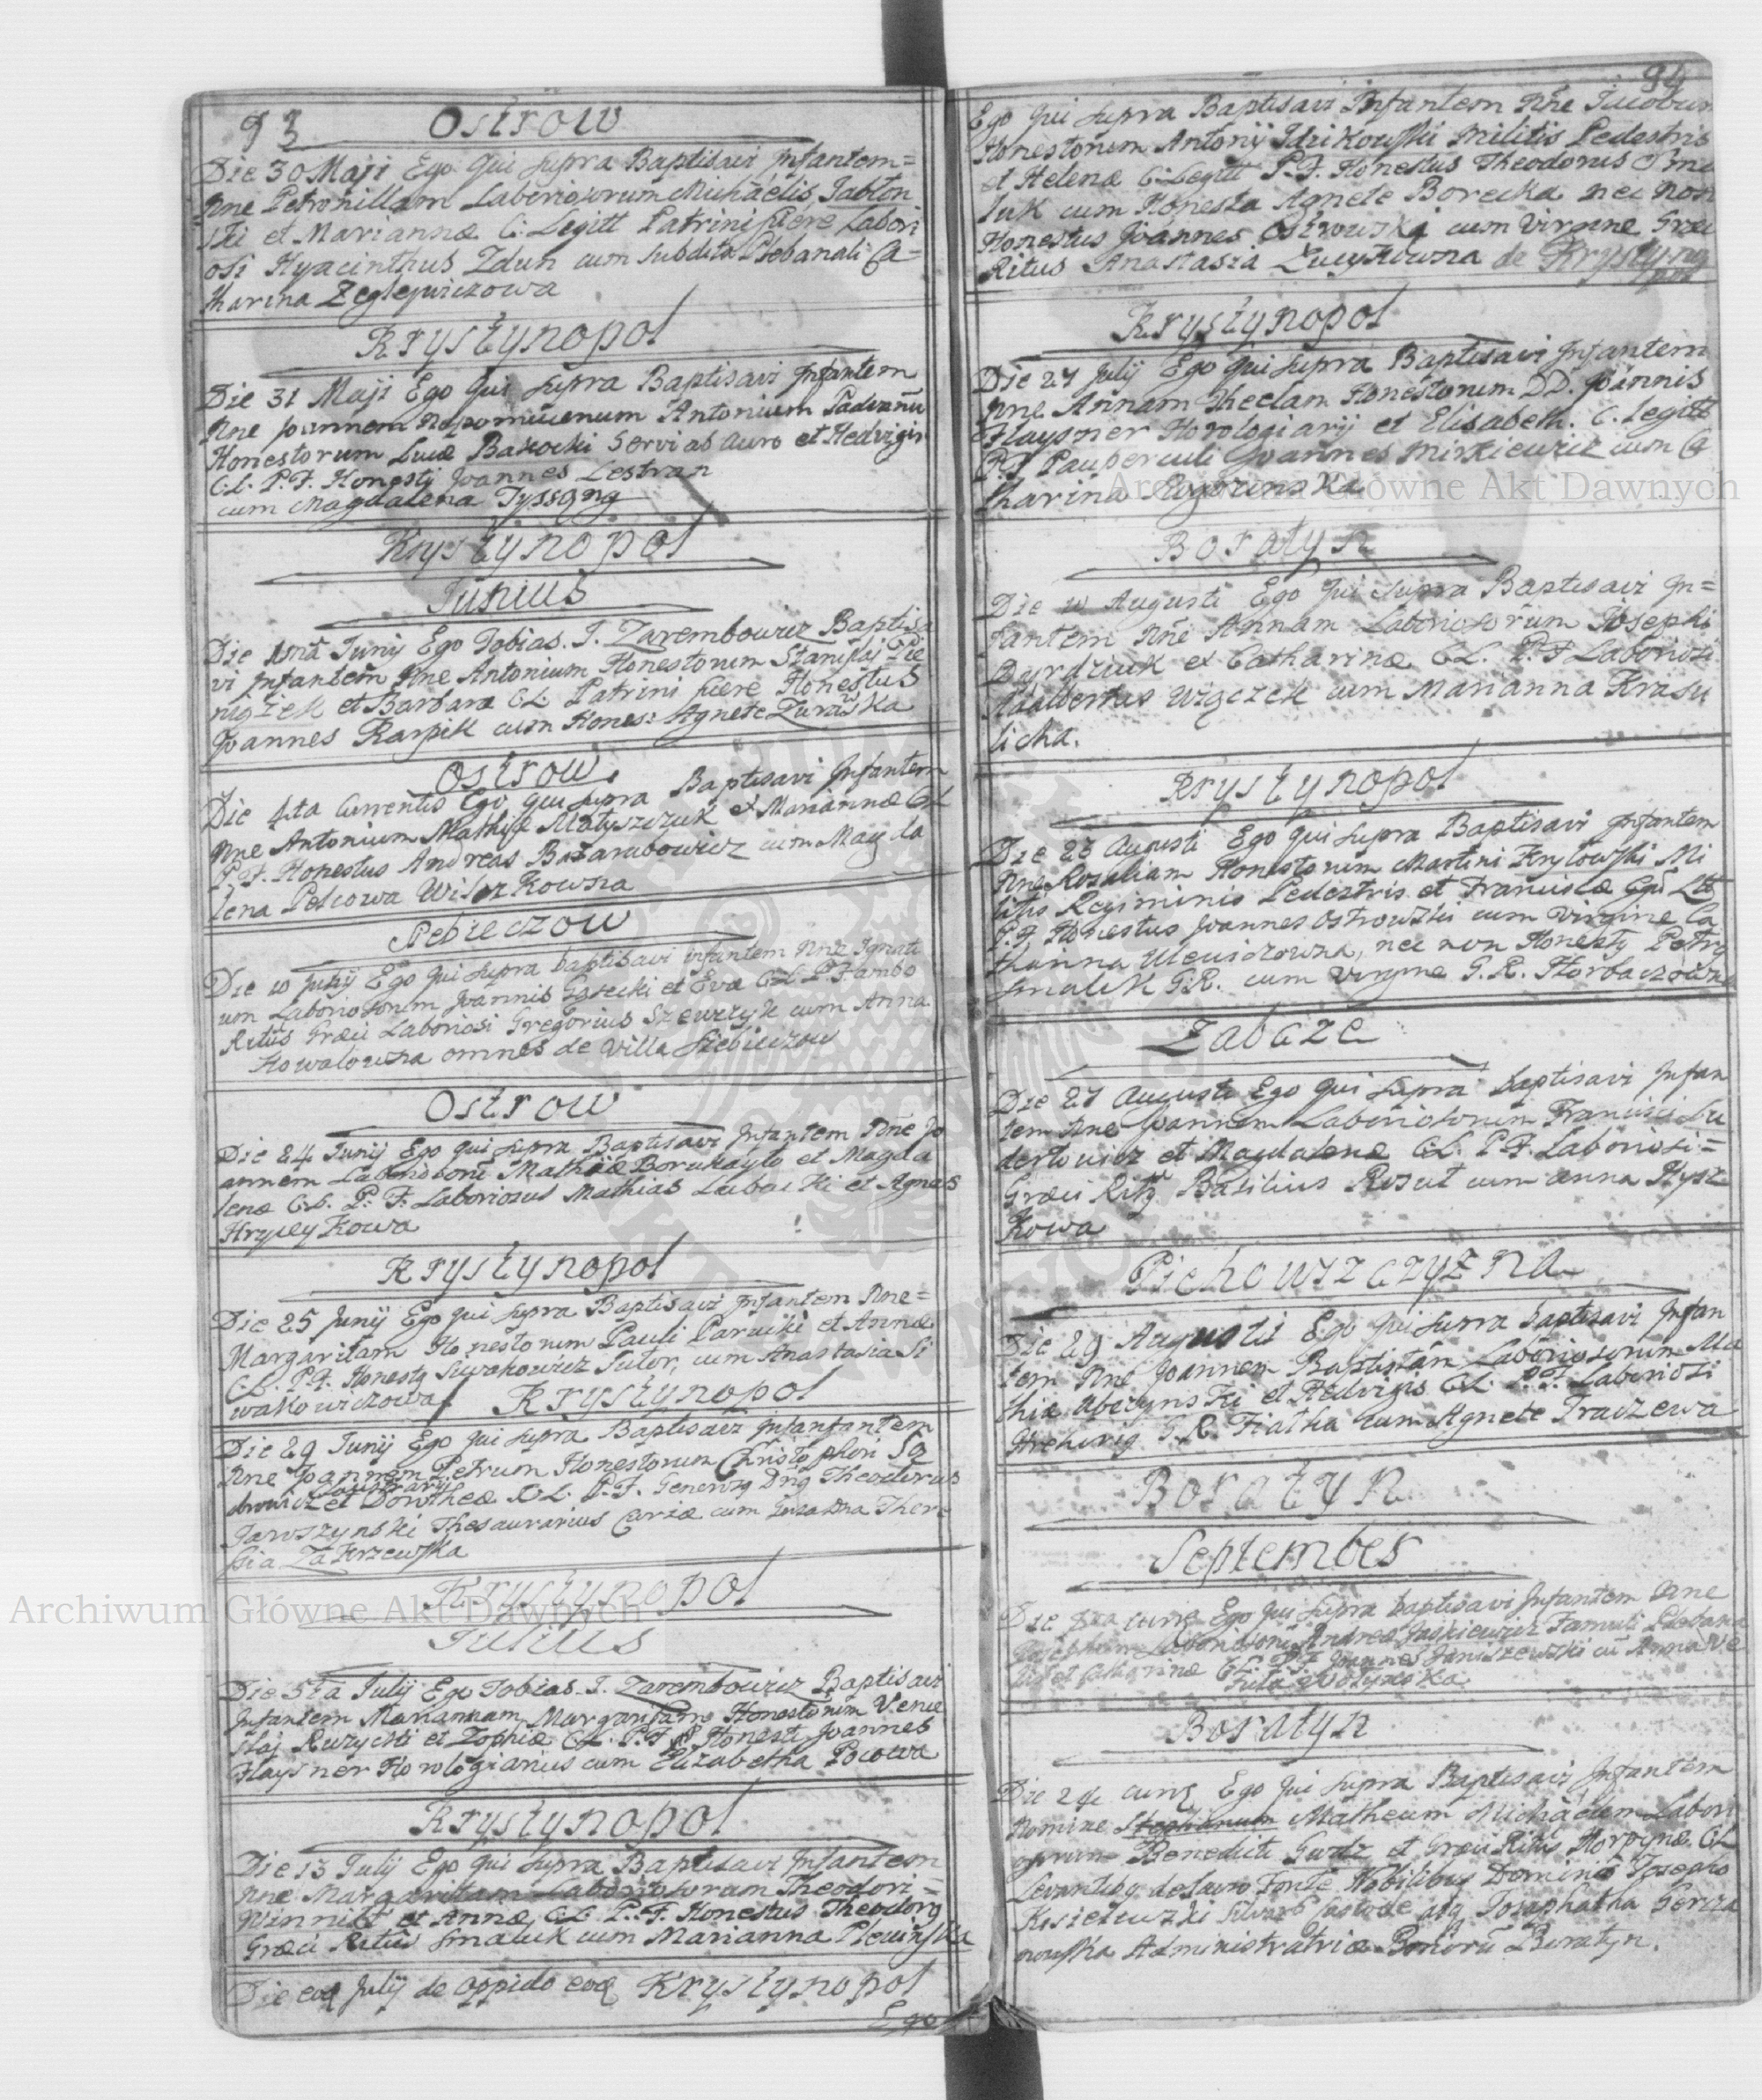 93
Ostrow
Die 30 Maji Ego qui supra Baptisavi Infantem=
Nne Petronillam Laboriosorum Michaelis Jablon
ski et Mariannæ C: Legitt Patrini fuere Labori
osi Hyacinthus Zdun cum subdita Plebanali Ca=
tharina Zeglepiczowa
Krystynopol
Die 31 Maji Ego qui supra Baptisavi Infantem
Nne Joannem Nepomucenum Antonium Paduanu
Honestorum Lucæ Bakocki Servi ab auro et Hedvigis
C.L. P.F. Honesty Joannes Lestran
cum Magdalena
Krystynopol
Junius
Die 1ma Junij Ego Tobias J. Zarembowicz Baptisa
vi Infantem Nne Antonium Honestorum Stanislaj
et Barbaræ CL Patrini fuere Honestus
Joannes Karpik cum Hones: Agnete Zurawska
Ostrow
Die 4ta Currentis Ego qui supra Baptisavi Infantem
Nne Antonium Mathiæ Matyszczuk et Mariannæ CL
P.F. Honestus Andreas cum Magda
lena Pelcowa
Siebieczow
Die 10 Junij Ego qui supra baptisavi infantem Nne Ignati
um Laboriosorum Joannis Gasecki et Evæ CL P.F. ambo
Ritus Græci Laboriosi Gregorius Szewczyk cum Anna
Kowalowna omnes de Villa Siebieczow
Ostrow
Die 24 Junij Ego qui supra Baptisavi Infantem Nne Jo
annem Laboriosorū Mathiæ Borukayło et Magda
lenæ CL. P. F. Laboriosus Mathias Lubecki et Agnes
Hryceykowa
Krystynopol
Die 25 Junij Ego qui supra Baptisavi Infantem Nne=
Margaritam Honestorum Pauli Parucki et Annæ
CL. P.F. Honestq Siwakowicz Sutor, cum Anastasia Si
wakowiczowa Krystynopol
Die 29 Junij Ego qui supra Baptisavi Infanfantem
Nne Joannem Petrum Honestorum Christophori Sa
et Dorotheæ CL. P.F. Generosq Dnq Theodorus
Jaroszynski Thesaurarius Curiæ cum There
sia Zakrzewska
Krystynopol
Julius
Die 5ta Julij Ego Tobias J. Zarembowicz Baptisavi
Infantem Mariannam Margaritam Honestorum Vence
slaj Ruzycki et Zophiæ CL. P.F Honesti Joannes
Flaysner Horologiarius cum Elizabetha Pocowa
Krystynopol
Die 13 Julij Ego qui supra Baptisavi Infantem
Nne Margaritam Laboriosorum Theodori=
Winnik et Annæ CL P.F. Honestus Theodorq
Græci Ritus Smaluk cum Marianna Plewinska
Die eoq Julij de oppido eoq Krystynopol
Ego
94
Ego qui supra Baptisavi Infantem Nne Jacobum
Honestorum Antonij Idzikowski Militis Pedestris
et Helenæ C: Legitt P.F. Honestus Theodorus Sma
luk cum Honesta Agnete Borecka nec non
Honestus Joannes Ostrowski cum Virgine Græci
Ritus Anastasia Lucykowna de Krystyno
pol
Krystynopol
Die 27 Julij Ego qui supra Baptisavi Infantem
Nne Annam Theclam Honestorum DD. Joannis
Flaysner Horologiarij et Elisabeth. C. Legitt
P.F Pauperculi Joannes Mirkiewicz cum Ca
tharina Rogozinska
Boratyn
Die 10 Augusti Ego qui supra Baptisavi In=
fantem Nne Annam Laboriosorum Josephi
Burdziuk et Catharinæ CL. P.F Laboriosi
Adalbertus Wiączek cum Marianna Krasu
licka.
Krystynopol
Die 26 Augusti Ego qui supra Baptisavi Infantem
Nne Rosaliam Honestorum Martini Krylowski Mi
litis Regiminis Pedestris et Franciscæ
P.F Honestus Joannes Ostrowski cum Virgine Ca
tharina, nec non Honestq Petrq
Smaluk G.R. cum Virgine G.R. Horbaczowna
Zabcze
Die 27 Augusti Ego qui supra baptisavi Infan
tem Nne Joannem Laboriosorum Francisci Lu
dertowicz et Magdalenæ CL. P.F. Laboriosi=
Græci Ritq Basilius Rosut cum Anna Hysz
kowa
Piehowszczyzna
Die 29 Augusti Ego qui supra baptisavi Infan
tem Nne Joannem Baptistam Laboriosorum Ma
thiæ Obezynski et Hedvigis CL. P.F. Laboriosi
Hrehorig G.R. Fiałka cum Agnete Traczewa
Boratyn
September
Die Ego qui supra baptisavi Infantem Nne
Josephum Laboriosorū Andreæ Jaskiewicz Famuli Plebana
lis et Catharinæ CL. P.F Joannes Janiszewski cū Anna
Wołynska
Boratyn
Die 24 curq Ego qui supra Baptisavi Infantem
Nomine Stephanum Matheum Michaelem Labori
osorum Benedicti et Græci Ritus Horpynæ CL
Levantibq de Sacro Fonte Nobilibus Domino Josepho
Kosieluzki Silvar Custode atq Josaphatha
Administratrice Bonorū Boratyn.
Archiwum Główne Akt Dawnych
Archiwum Główne Akt Dawnych